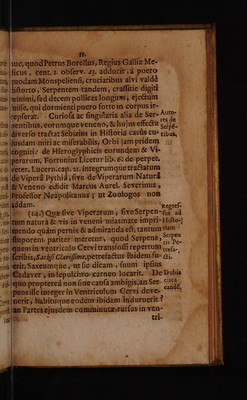 11.
huc, quod Petrus Borellus, Regius Galliæ Me-
dicus, cent. 1. observ. 43. adducit, à puero
quodam Monspeliensi, cruciatibus alvi valdè
histerto, Serpentem tandem, crassitie digiti
minimi, sed decem pollices longum, ejectum
fuisse, qui dormienti puero forte in corpus ir-
repserat. Curiosa ac singularia alia de Ser-
pentibus, eorumque veneno, & hujus effectu
diverso tractat Sebizius in Historia casûs cu-
jusdam miri ac miserabilis, Orbi jam pridem
cogniti: de Hieroglyphicis eorundem & Vi-
perarum, Fortunius Licetus lib. 6. de perpet.
veter. Lucern. cap. 21. integrumque tractatum
de Vipera Pythia, sive de Viperarum Naturâ
& Veneno edidit Marcus Aurel. Severinus,
Professor Neapolitanus; ut Zoologos non
addam.
(14.) Quæ sive Viperarum, sive Serpen-
tum natura & vis in veneni miasmate impri-
mendo quàm pernix & admiranda est, tantum
stuporem pariter meretur, quod Serpens
quem in ventriculo Cervi transfossi repertum
scribis, Sachsi Clarissime, petrefactus ibidem fu-
erit. Saxeumque, ut sic dicam, suum ipsius
Cadaver, in sepulchro carneo locarit. De
quo propterea non sine causa ambigis, an Ser-
pens ille integer in Ventriculum Cervi deve-
nerit, habitumque eodem ibidem Induruerit?
an Partes ejusdem comminutæ rursus in ven-
tri-
Auto-
res de
Serpē-
tibus.
Regres-
sus ad
Histo-
riam
Serpen
tis Pe-
trefa-
cti.
Dubia
circa